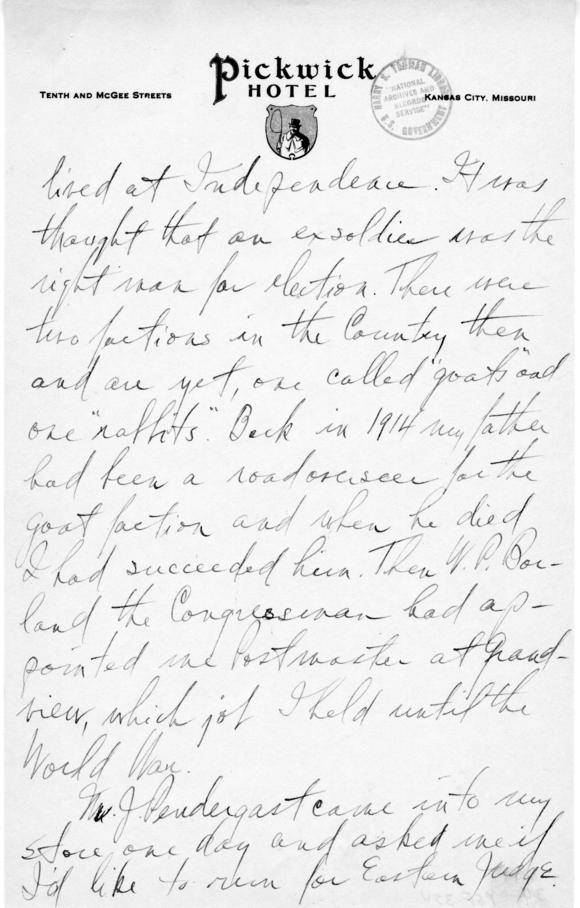 Pickwick
HOTEL
TENTH AND MCGEE STREETS
KANSAS CITY, MISSOURI
HARRY S. TRUMAN LIBRARY
"NATIONAL
ARCHIVES AND
RECORDS
SERVICE"
U.S. GOVERNMENT
lived at Independence. It was
thought that an exsoldier was the
right man for election. There were
two factions in the County then
and are yet, one called "goats" and
one "rabbits". Back in 1914 my father
had been a road overseer for the
goat faction and when he died
I had succeeded him. Then W.P. Bor-
land the Congressman had ap-
pointed me Postmaster at Grand-
view, which job I held until the
World War.
M. J. Pendergast came into my
store one day and asked me if
I'd like to run for Eastern Judge.